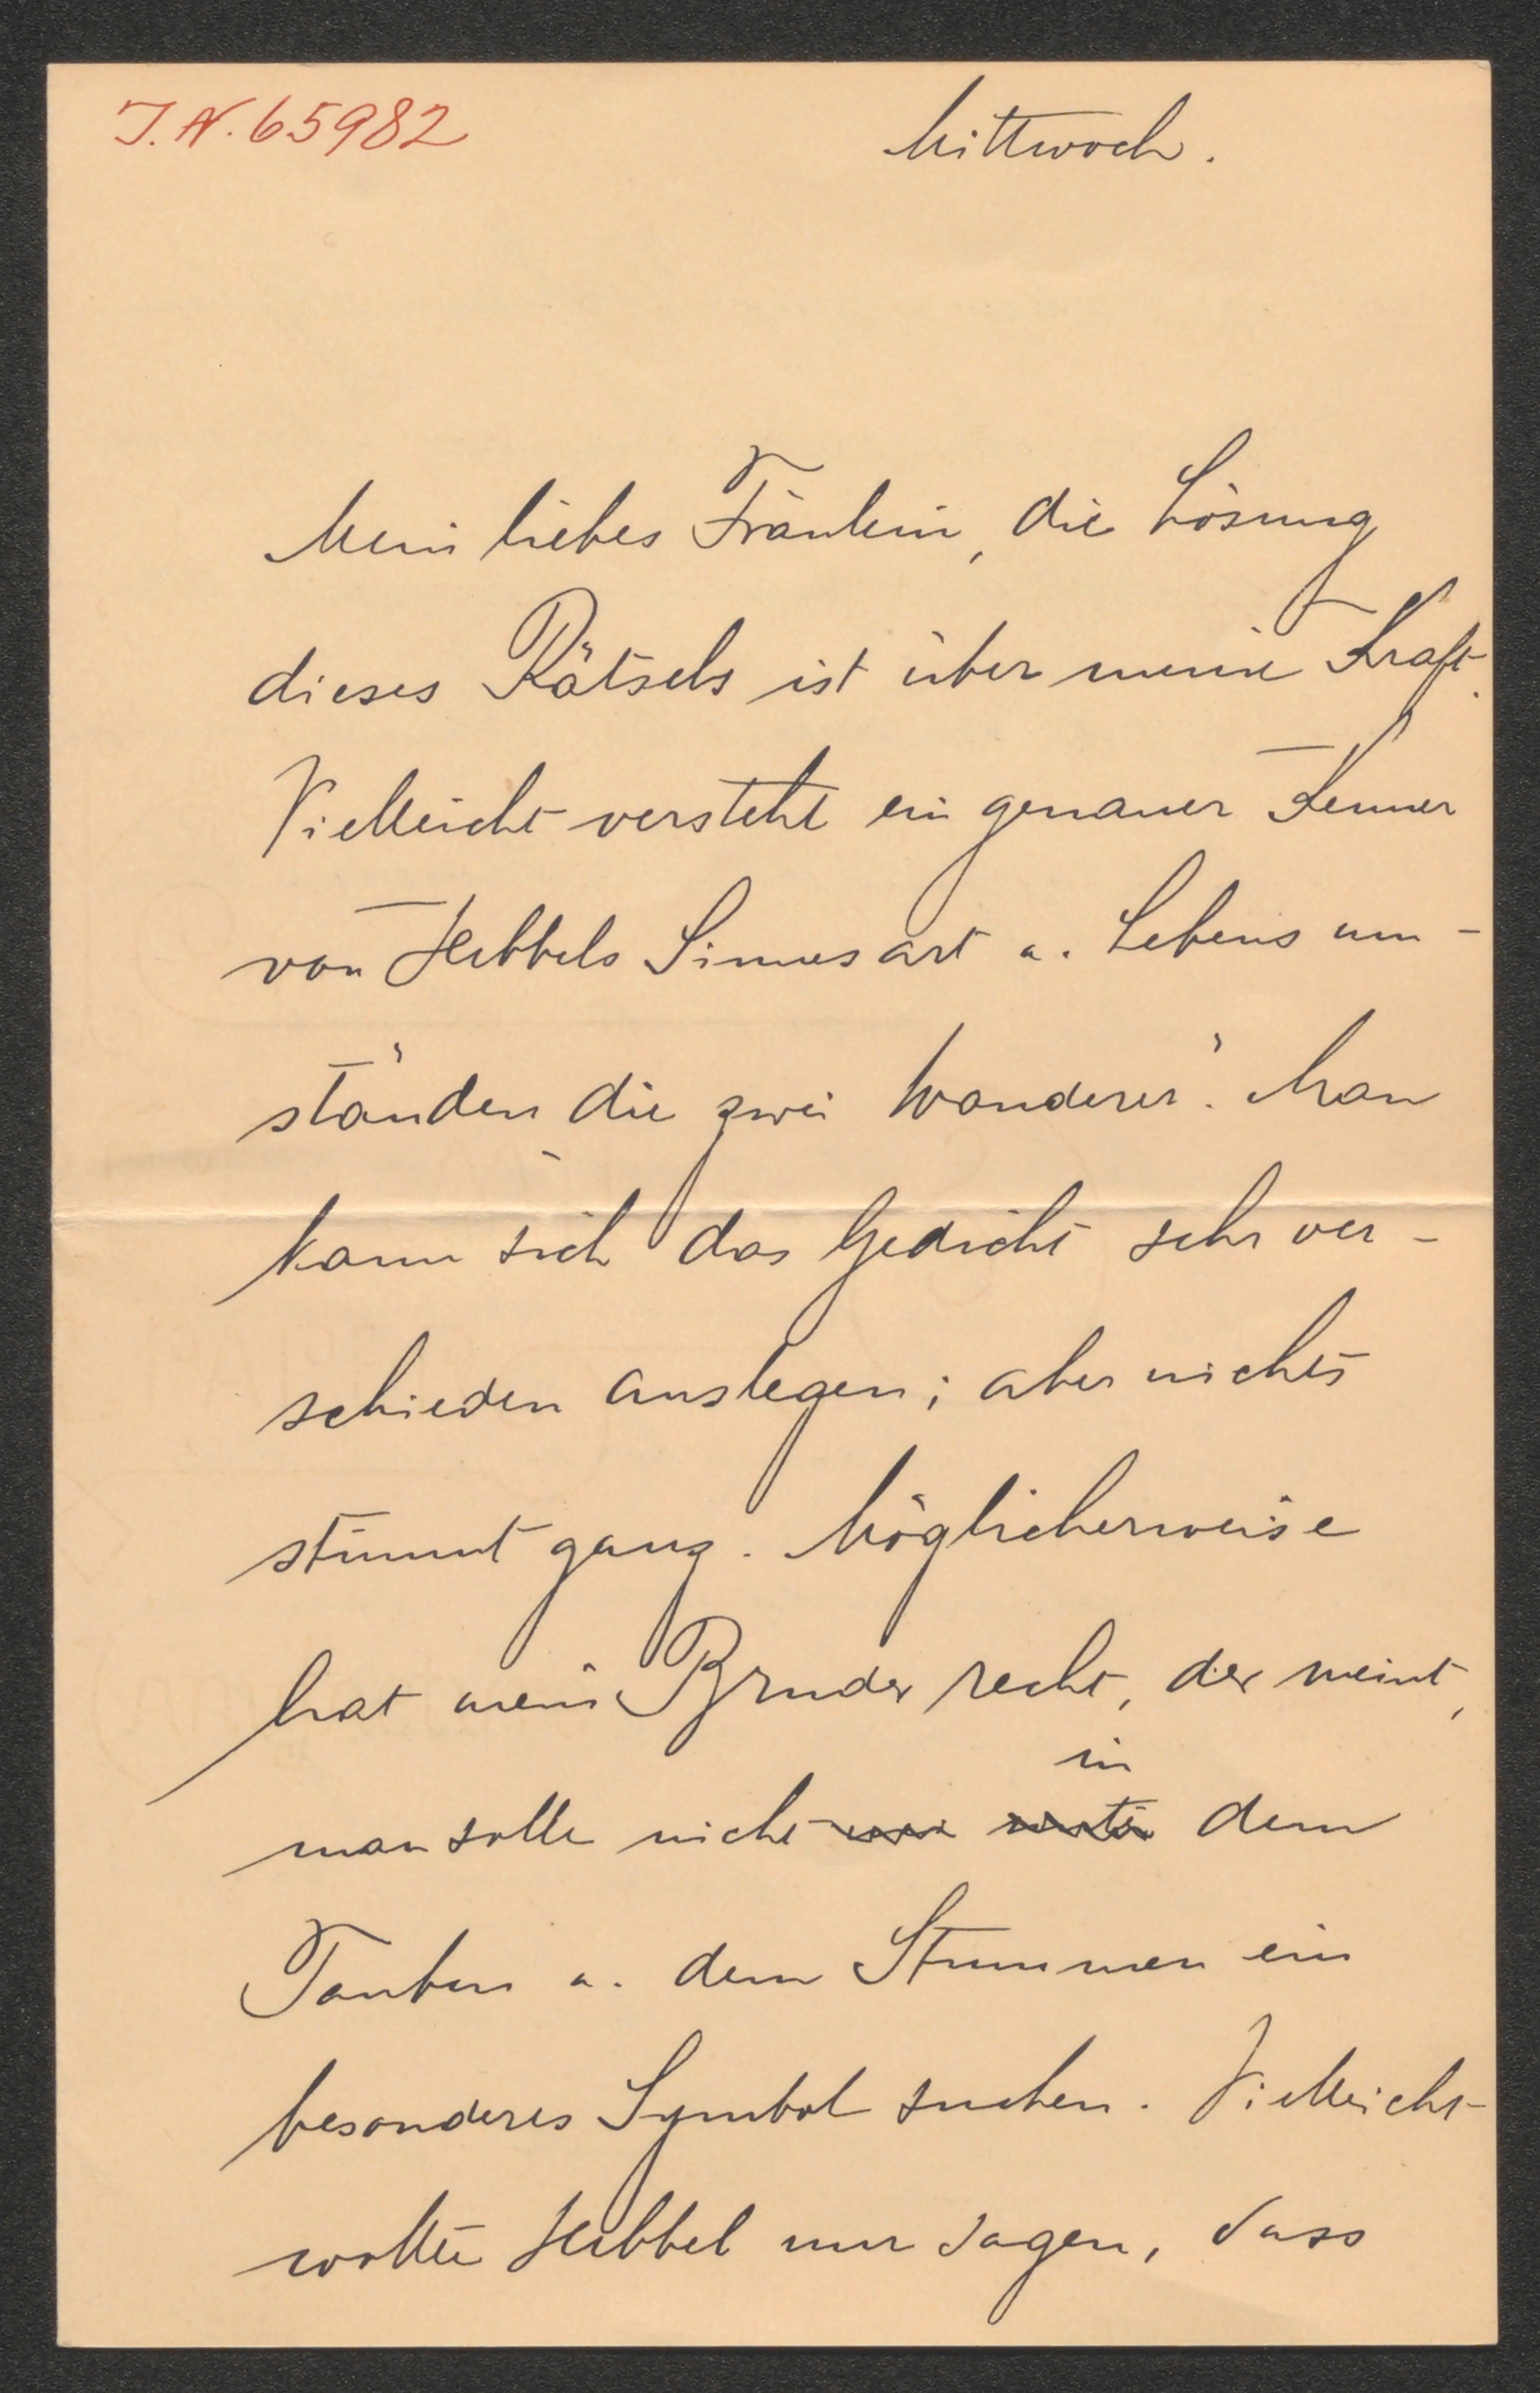 J. N. 65982
Mittwoch.
Mein liebes Fräulein, die Lösung
dieses Rätsels ist über meine Kraft.
Vielleicht versteht ein genauer Kenner
von Hebbels Sinnesart u. Lebensum-
ständen die „zwei Wanderer“. Man
kann sich das Gedicht sehr ver-
schieden auslegen; aber nichts
stimmt ganz. Möglicherweise
hat mein Bruder recht, der meint,
in
man solle nicht dem
Tauben u. dem Stummen ein
besonderes Symbol suchen. Vielleicht
wollte Hebbel nur sagen, dass